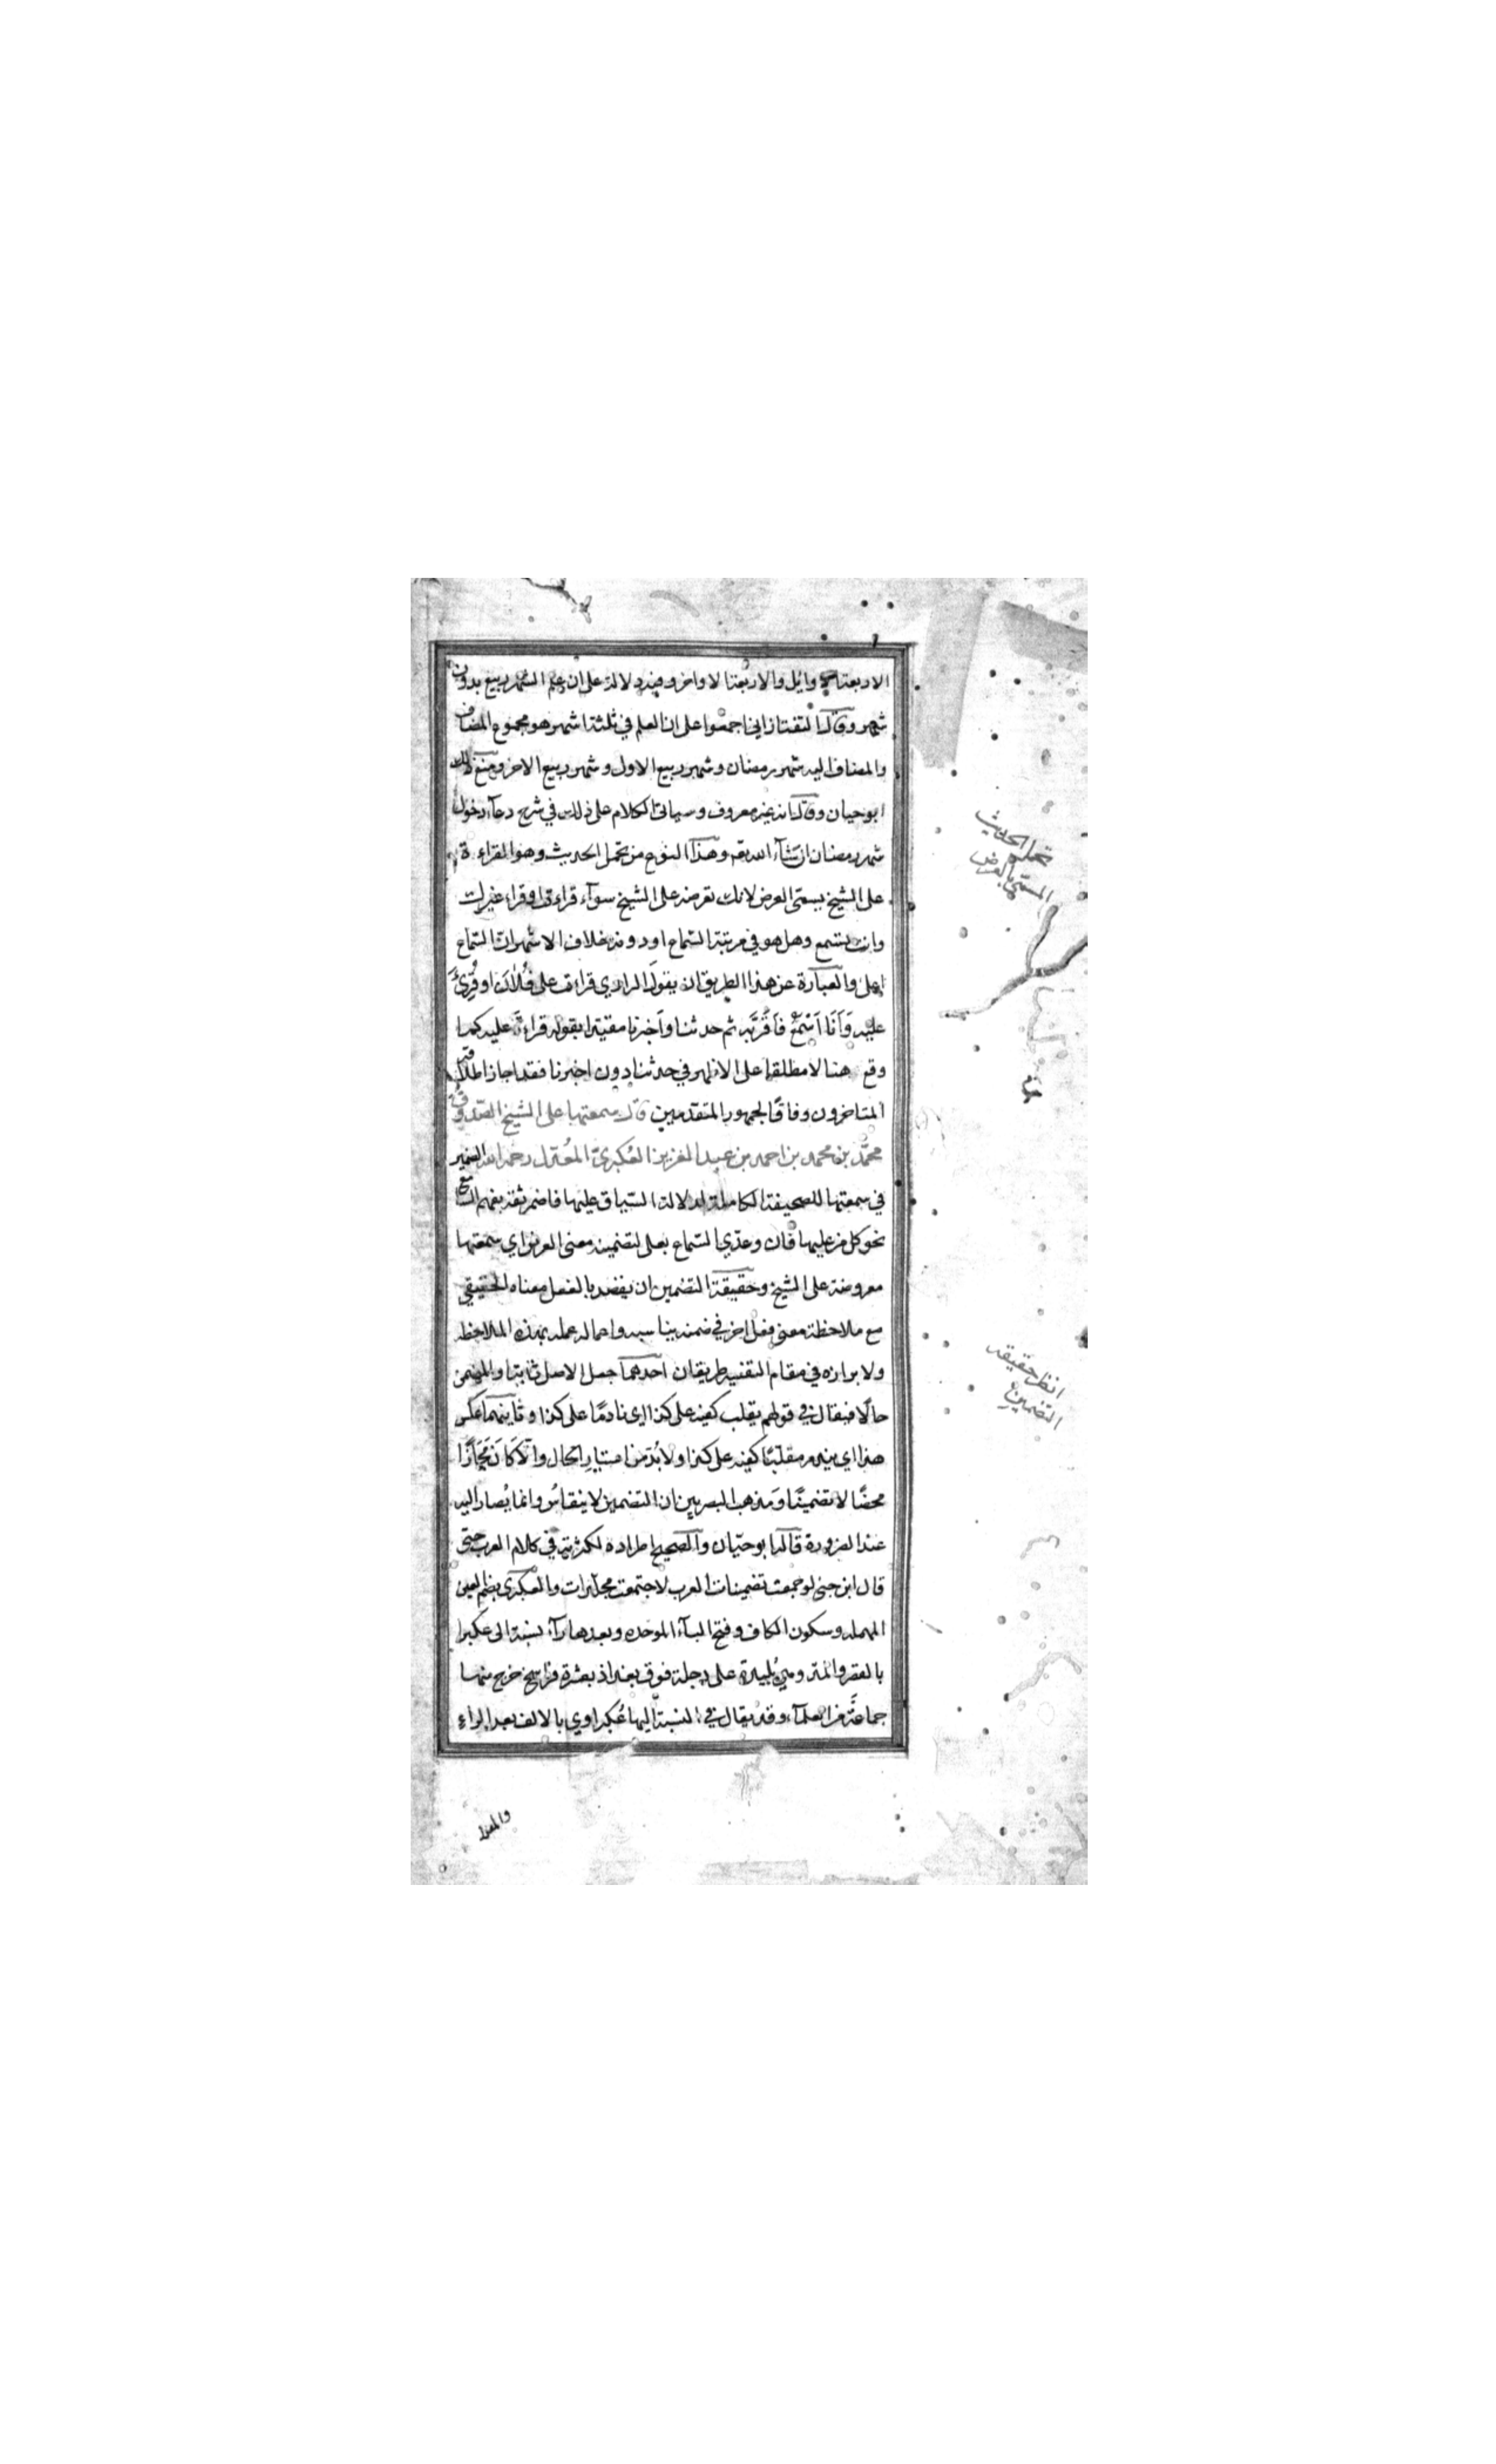 الاربعة الاوايل والاربعة الاواخر وفيه دلالة على ان علم الشهر ربيع بدون
شهر وقال التفتازاني اجمعوا على ان العلم في ثلثة اشهر هو مجموع المضاف
والمضاف اليه شهر رمضان وشهر ربيع الاول وشهر ربيع الاخر ومنع ذلك
ابوحيان وقال انه غير معروف وسياتي الكلام على ذلك في شرح دعآء دخول
شهر رمضان ان شآء الله تع وهذا النوع من تحمل الحديث وهو القراءة
على الشيخ يسمى العرض لانك تعرضه على الشيخ سوآء قراءت او قراء غيرك
وانت تستمع وهل هو في مرتبة السماع او دونه خلاف الاشهر ان السماع
اعلى والعبارة عن هذا الطريق ان يقول الراوي قراءت على فُلَان او قُرِئَ
عليه وَاَنَا اَسْمَعُ فَاَقَرَّ بِه ثم حدثنا واَخبرنا مقيّدا بقوله قراءةً عليه كما
وقع هنا لا مطلقا على الاظهر في حدثنا دون اخبرنا فقد اجاز اطلاقه
المتاخرون وفاقًا لجمهور المتقدمين قال سمعتها على الشيخ الصّدوق
محمّد بن محمد بن احمد بن عبد العزيز العُكبريّ المُعَدّل رحمه الله الضمير
في سمعتها للصحيفة الكاملة لدلالة السّياق عليها فاضمر ثقة بفهم السامع
نحو كل من عليها فان وعدّي السّماع بعلى لتضمينه معنى العرض اي سمعتها
معروضة على الشيخ وحقيقة التضمين ان يقصد بالفعل معناه الحقيقي
مع ملاحظة معنى فعل اخر في ضمنه يناسبه واعماله عمله بهذه الملاحظة
ولابرازه في مقام التفسير طريقان احدهما جعل الاصل ثابتا والمضمن
حالًا فيقال في قولهم يقلب كفيه على كذا اي نادمًا على كذا وثانيهما عكس
هذا اي يندم مقلّبًا كفيه على كذا ولا بُدّ من اعتبار الحال والّا كَانَ مَجَازًا
محضًا لا تضمينًا وَمذهب البصريين ان التضمين لا ينقاسُ وانما يُصار اليه
عند الضرورة قال ابوحيّان والصحيح اطراده لكثرته في كلام العرب حتى
قال ابن جنى لو جمعت تضمينات العرب لاجتمعت مجلّدات والعكبري بضم العين
المهملة وسكون الكاف وفتح البآء الموحده وبعدها رآء نسبة الى عكبرا
بالقصر والمدّ وهي بُليدة على دجلة فوق بغداذ بعشرة فراسخ خرج منها
جماعَة من العلمآء وقد يقال في النسبة اليها عُكبراوي بالالف بعد الراءِ
تحمل الحديث
المسمى بالعرض
انظر حقيقة
التضمين
والمعدل